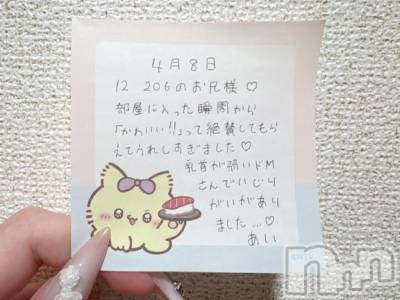 4月8日
12 206のお兄様♡
部屋に入った瞬間から
「かわいい!!」って絶賛してもら
えてうれしすぎました♡
乳首が弱いドM
さんでいじり
がいがあり
ました...♡
あい